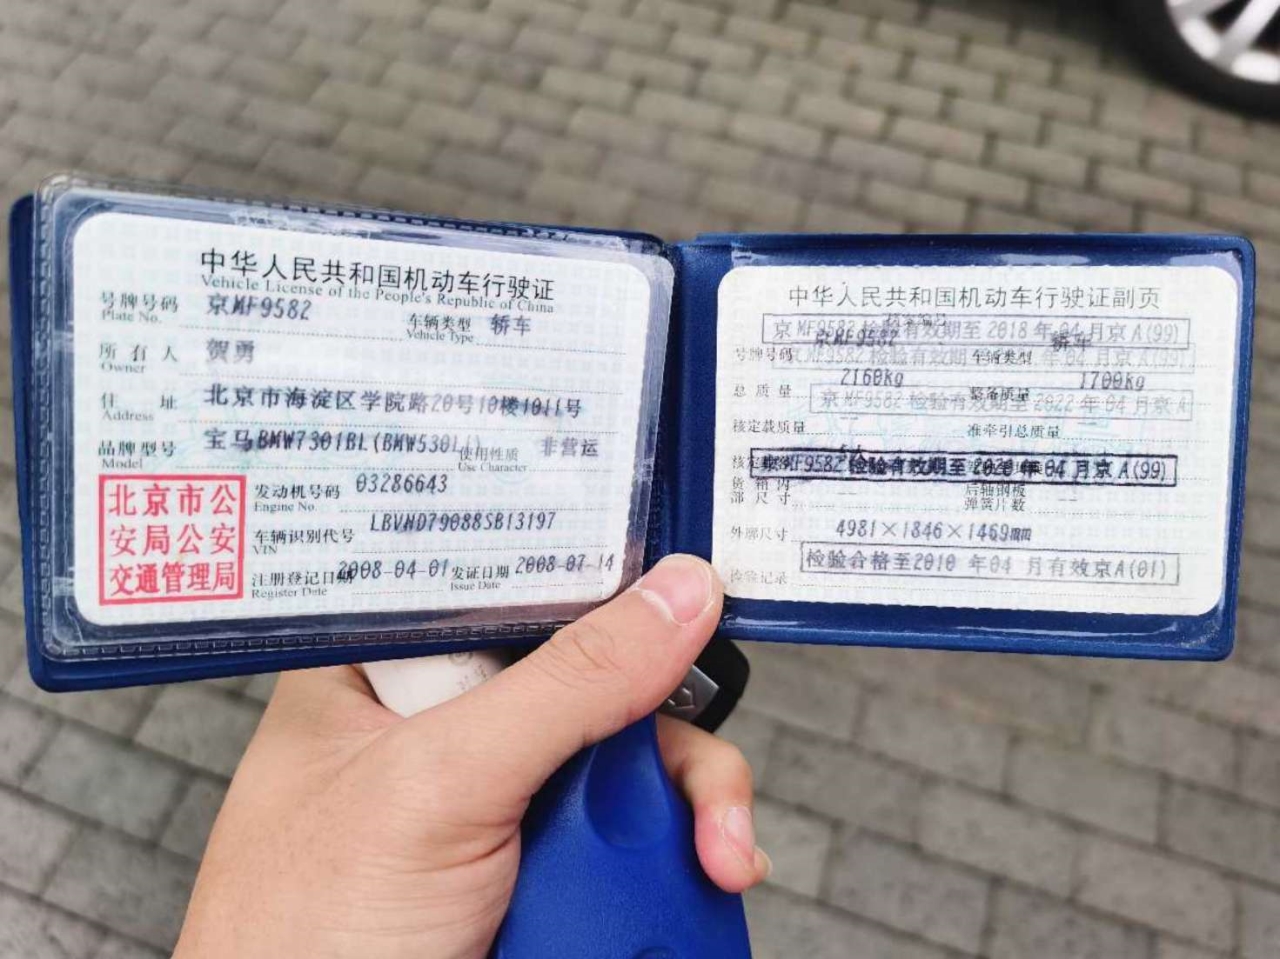 中华人民共和国机动车行驶证
Vehicle License of the People's Republic of China
号牌号码 京MF9582 车辆类型 轿车
Plate No. Vehicle Type
所有人 贺勇
Owner
住址 北京市海淀区学院路20号10楼1011号
Address
品牌型号 宝马BMW7301BL(BMW530Li) 使用性质 非营运
Model Use Character
北京市公安局公安交通管理局
发动机号码 03286643
Engine No.
车辆识别代号 LBVHD79088SB13197
VIN
注册登记日期 2008-04-01 发证日期 2008-07-14
Register Date Issue Date
中华人民共和国机动车行驶证副页
京MF9582 检验有效期至2018年04月京A(99)
京MF9582 轿车
号牌号码 车辆类型
京MF9582 检验有效期 年04月京A(99)
总质量 2160kg 整备质量 1700kg
京MF9582 检验有效期至2022年04月京A
核定载质量 -- 准牵引总质量
京MF9582 检验有效期至2020年04月京A(99)
货箱内部尺寸 -- 后轴钢板弹簧片数 --
外廓尺寸 4981×1846×1469mm
检验合格至2010年04月有效京A(01)
检验记录